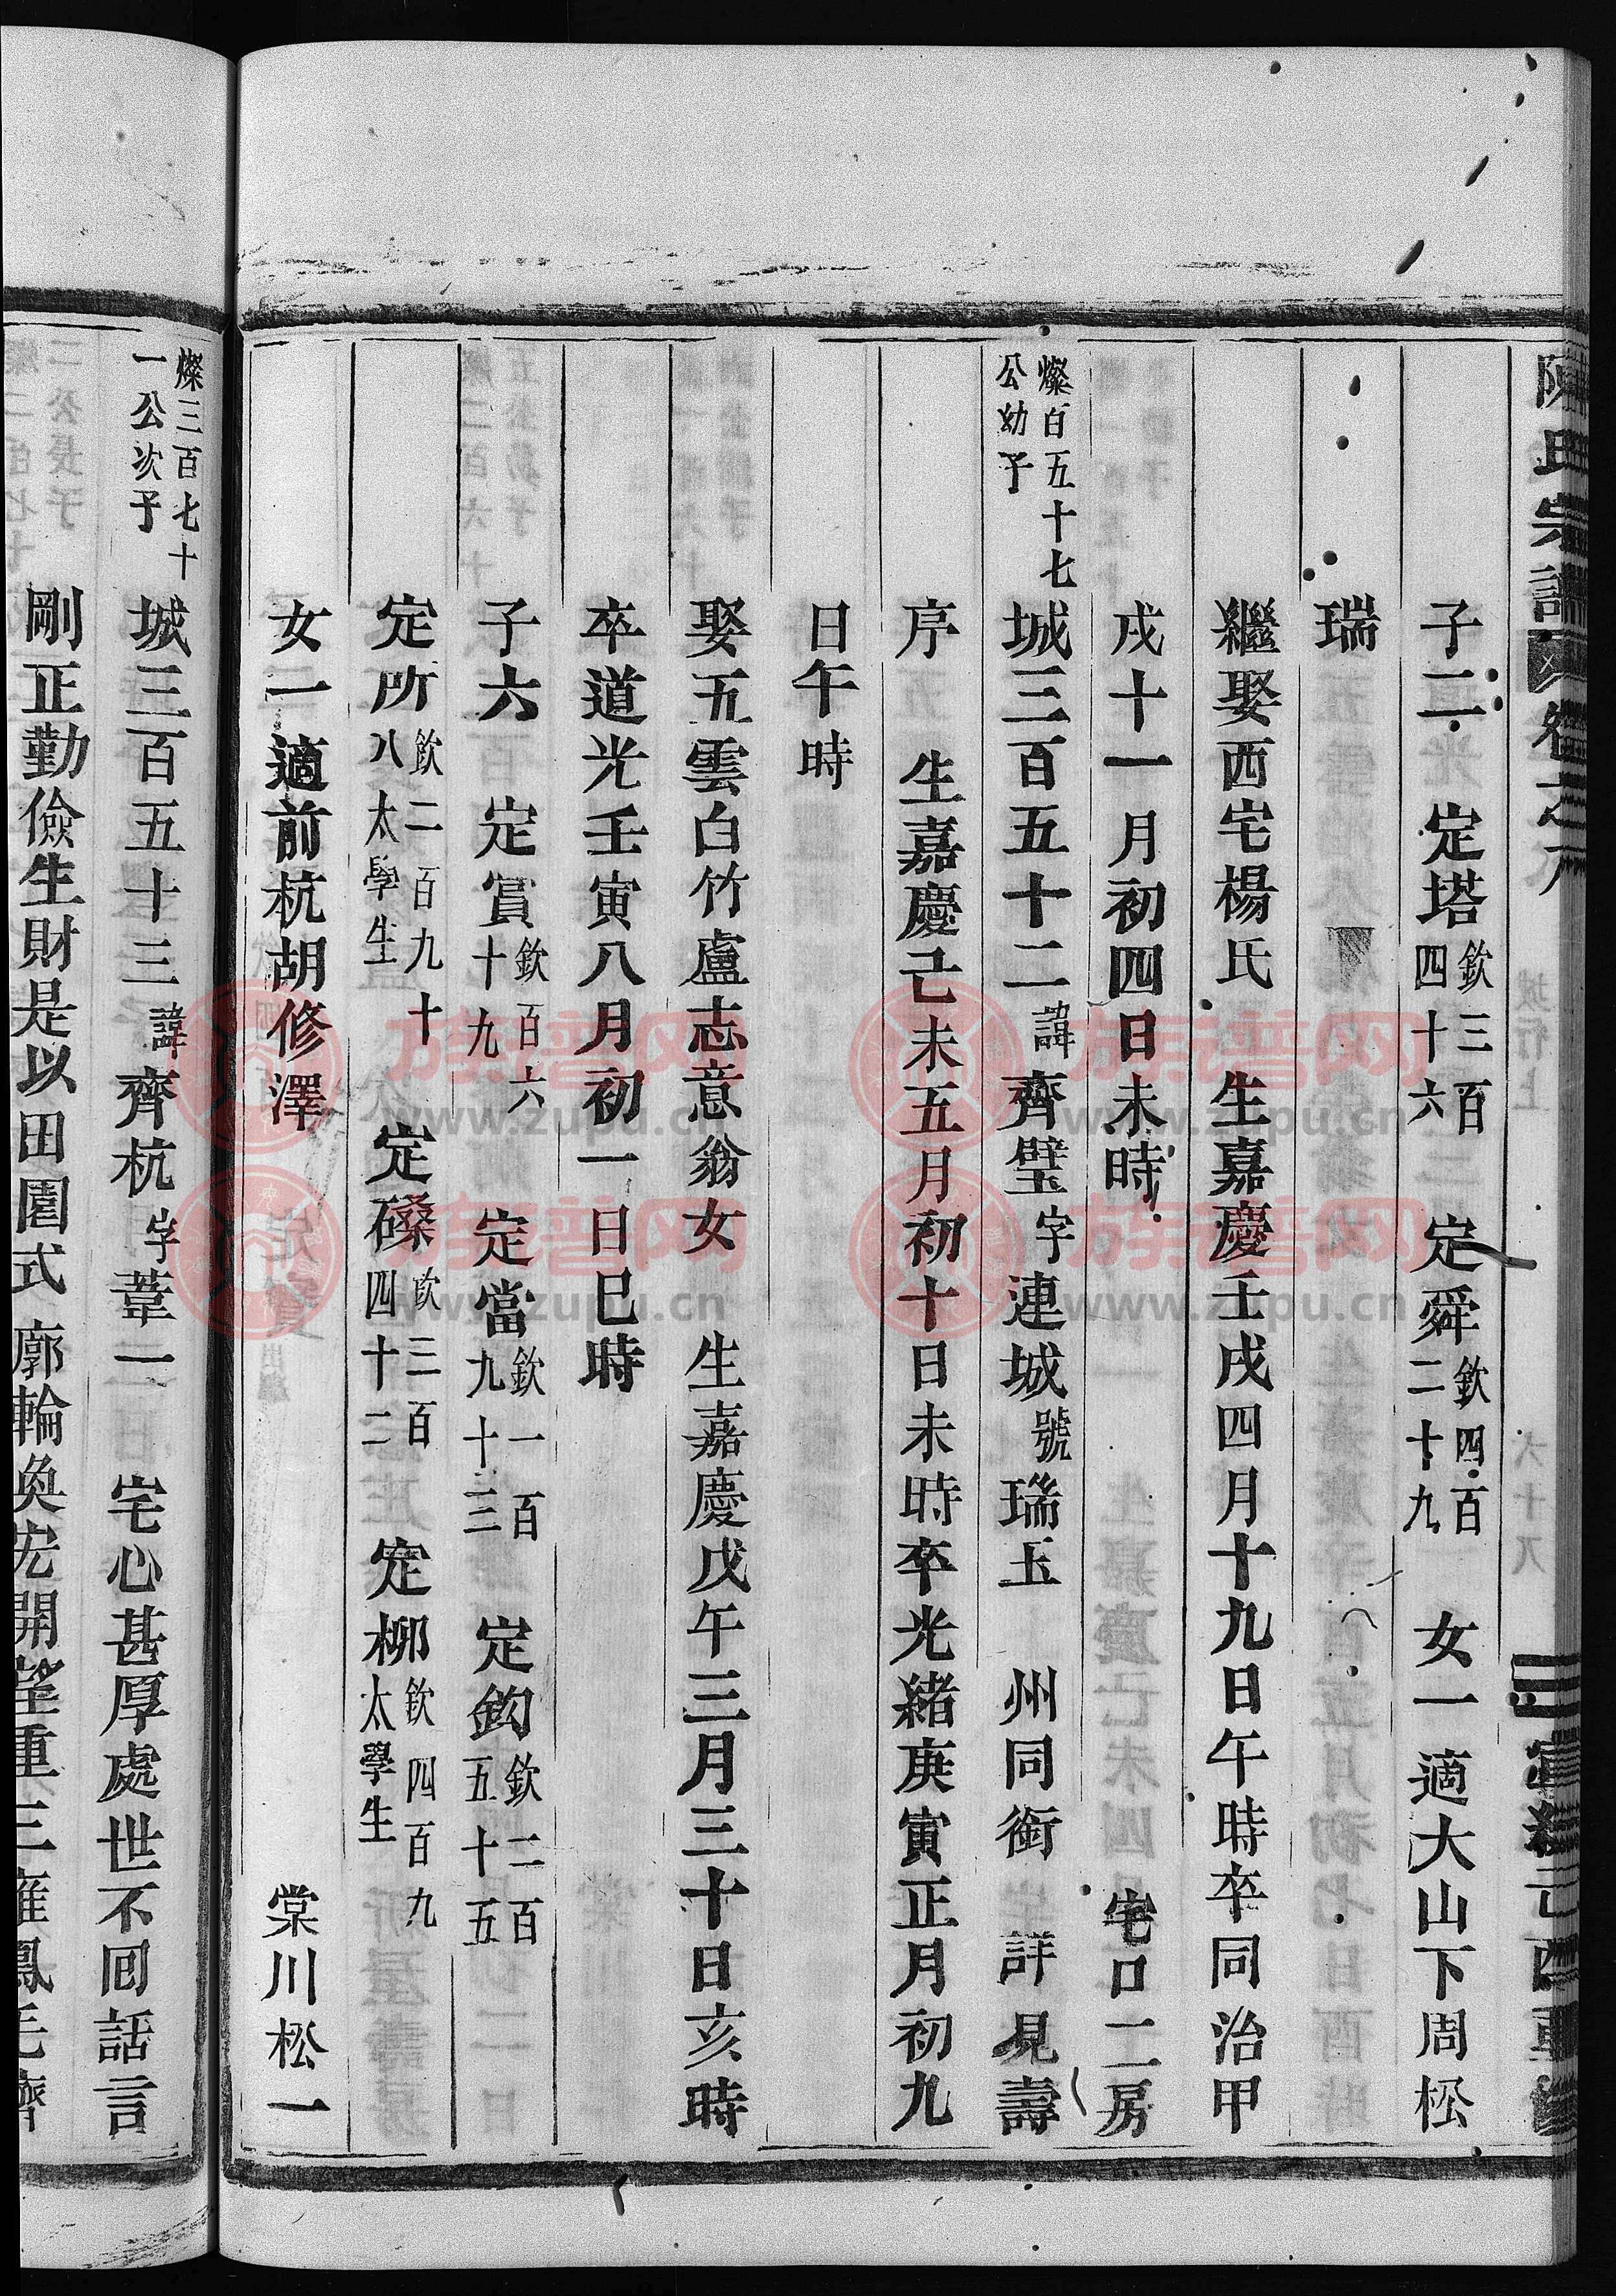 陳氏宗譜 卷之 城行上 六十八 宣統己酉重修
子二 定塔 欽三百四十六 定舜 欽四百二十九 女一適大山下周松
瑞
繼娶西宅楊氏 生嘉慶壬戌四月十九日午時卒同治甲
戌十一月初四日未時 宅口二房
燦百五十七公幼子 城三百五十二 諱齊璧 字連城 號瑞玉 州同銜 詳見壽
序 生嘉慶己未五月初十日未時卒光緒庚寅正月初九
日午時
娶五雲白竹盧志意翁女 生嘉慶戊午三月三十日亥時
卒道光壬寅八月初一日巳時
子六 定賞 欽百六十九 定當 欽一百九十三 定鈎 欽二百五十五
定所 欽二百九十八太學生 定磉 欽三百四十二 定柳 欽四百九太學生
女一適前杭胡修澤 棠川松一
燦三百七十一公次子 城三百五十三 諱齊杭 字葦一 宅心甚厚處世不囘話言
剛正勤儉生財是以田園式廓輪奐宏開望重三
族谱网 www.zupu.cn
族谱网 www.zupu.cn
族谱网 www.zupu.cn
族谱网 www.zupu.cn